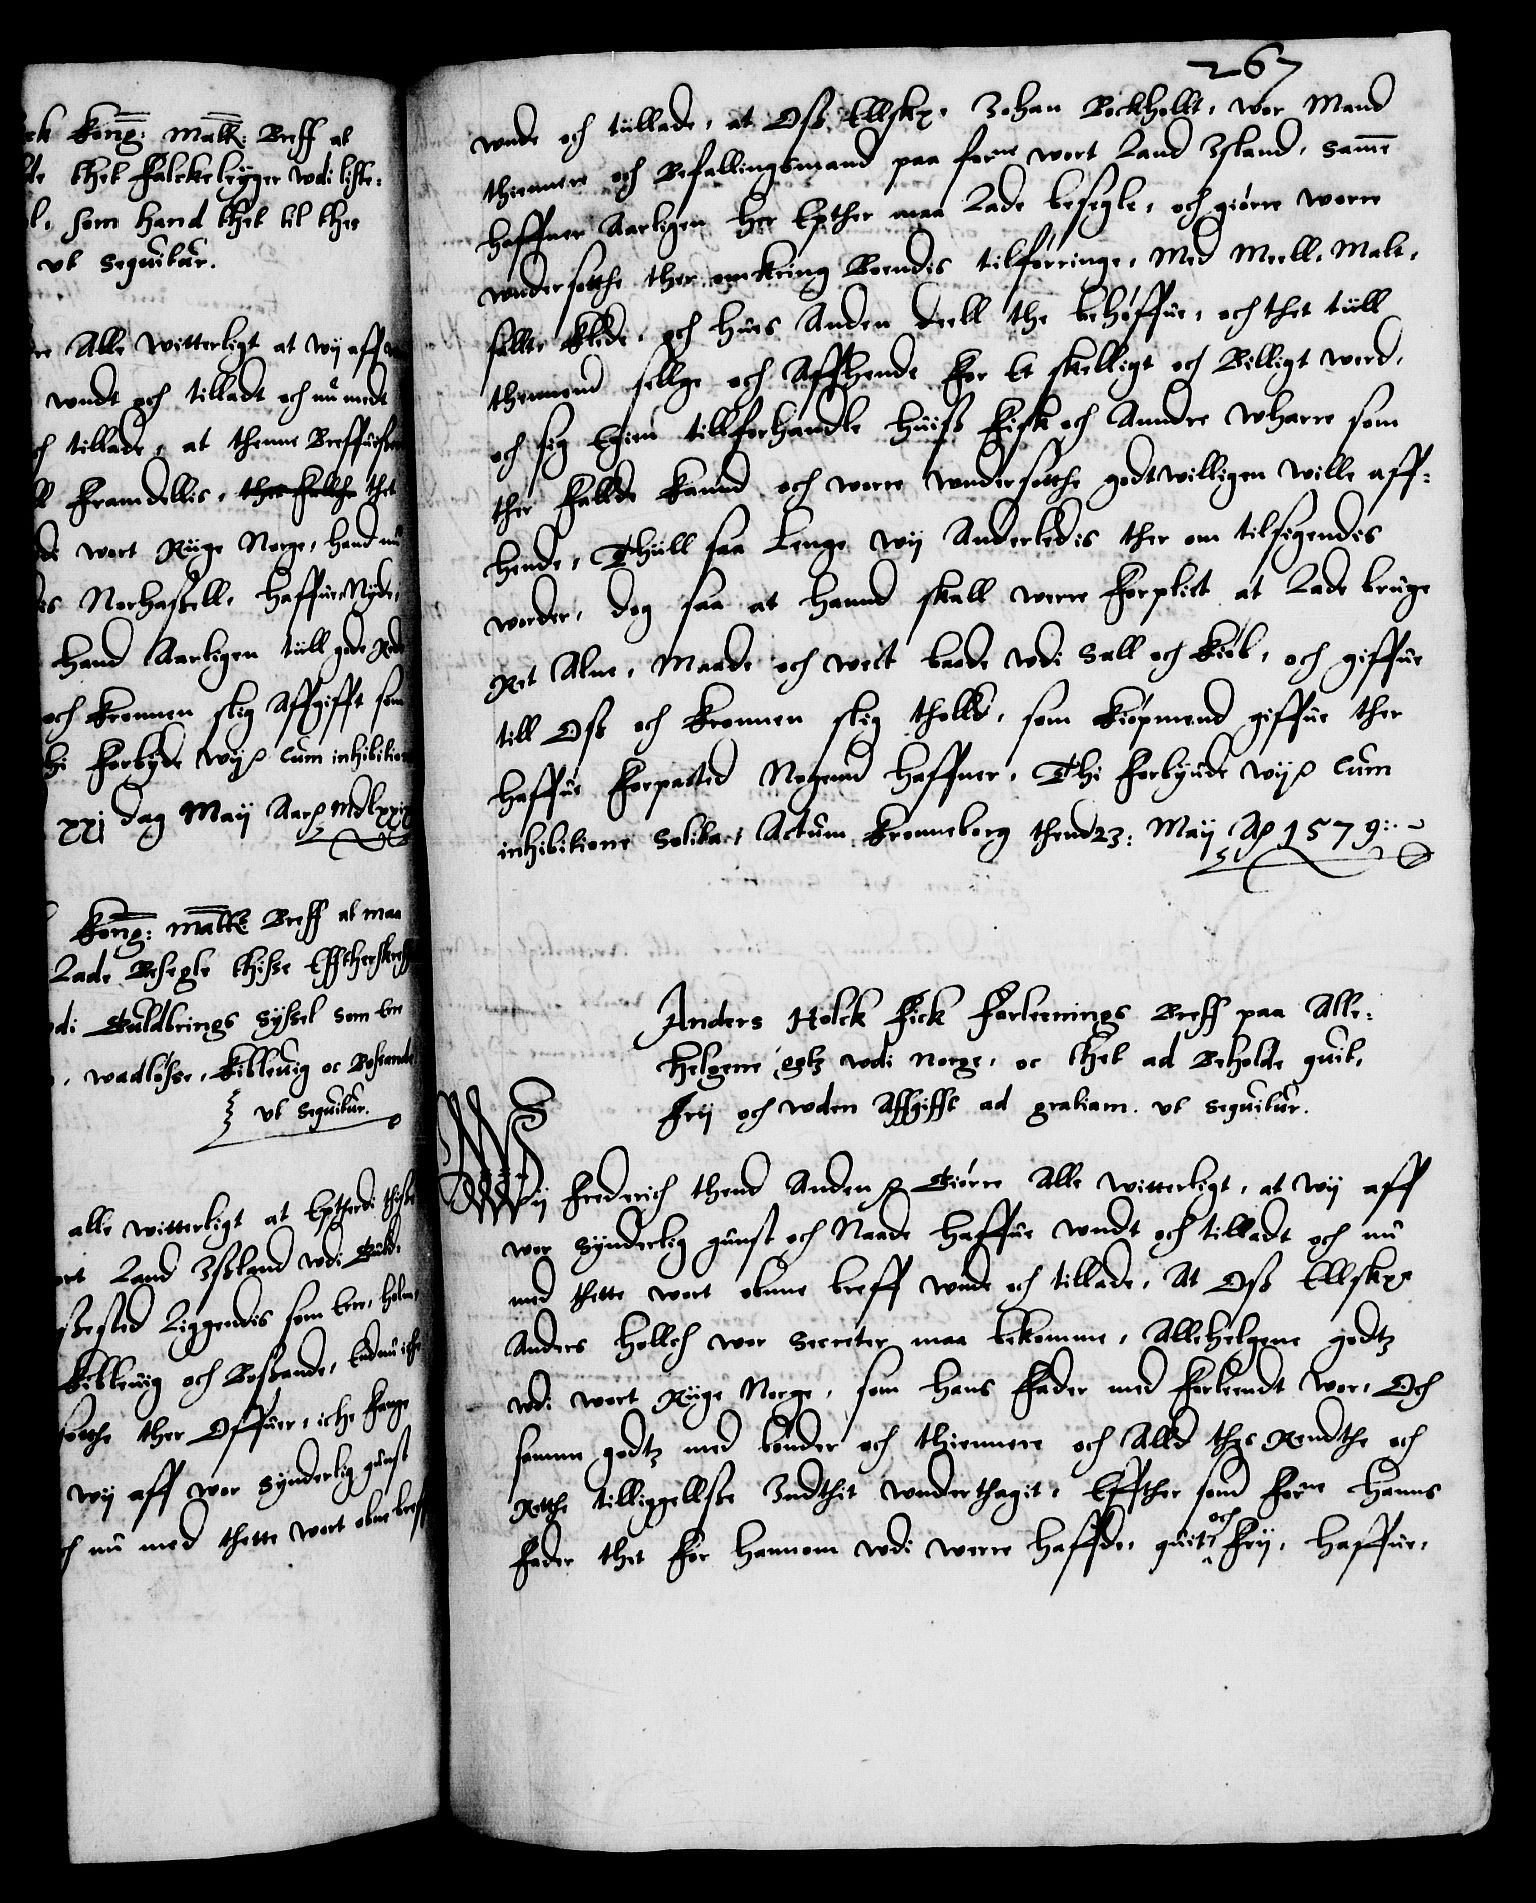 Kong: Matt: Breff at
thet Falckeleyger wdi liste:
som hand thet til thes
vt sequitur.
Alle witterligt at wij aff
wndt och tilladt och nu medt
tillade, at thenne Breffuis
Framdellis, ther fallch thet
wort Rüge Norge, hand nu
Norhassell, haffue, Nyde,
hand Aarligen tüll gode Rede
och Kronnen slig Affgifft som
Forbyde wij cum inhibition
xxj dag Maij Aar MDlxxix
Kong: Matt: Breff at maa
Lade Besegle thisse Effterskreff
Guldbrings Syssel som ere
wadløsse, Kibleuig oc Bosande
vt sequitur.
alle witterligt at Eptherdi thisse
Land Island wdi Guld:
Liggendis som ere, holm,
Kibleuig och Bosande, endnu iche
ther Offuer, iche fange
wij aff wor synderlig gunst
nu med thette wort obne breff
267
wnde och tüllade, at Oss Ellske. Johan Bockhollt, wor Mand
thiennere och Befallingsmand paa forne wort Land Island, samme
haffner Aarligen her Epther maa Lade besegle, och giørre worre
wndersotthe ther omkring Boendis tilførringe, Med Meell, Malt,
sallt, Klede, och hues Anden deell the behøffue, och thet tüll
thennem sellge och Affhende for Et skelligt och Billigt werd,
och sig Egien tillforhandle huiss Fisk och Anndre Wharre som
ther Fallde kannd och worre wndersotthe godtwilligen wille aff-
hende, Thüll saa Lenge wij Anderledis ther om tilsigendis
worder, dog saa at hannd skall werre Forplict at Lade bruge
Ret Alne, Maade och wect baade wdi Sall och Kiøb, och giffue
till Oss och Kronnen slig tholld, som Kiøpmend giffue ther
haffue Forpacted Nogennd haffner, Thi Forbyude wij cum
inhibitione Solita, Actum Kronneborg thend 23: Maij Ao 1579:
Anders Holck Fick Forleenings Breff paa Alle-
helgene gotz wdi Norge, oc thet ad Beholde quit,
Frij och wden Affgifft ad gratiam. vt sequitur.
Wij Frederich thend Anden Giørre Alle witterligt, at wij aff
wor synderlig gunst och Naade haffue wndt och tilladt och nu
med thette wort obnne breff wnde och tillade, At Oss Ellske
Anders Hollch wor Secreter maa bekomme, Allehelgene godtz
wdi wort Rüge Norge, som hans Fader med Forleendt wor, Och
samme godtz med bønder och thiennere och Alld thes Rendthe och
Retthe tilliggellsse Indthit wnderthagit, Effther som Forne hanns
Fader thet For hannom wdi werre haffde, quit och Frij, haffue,